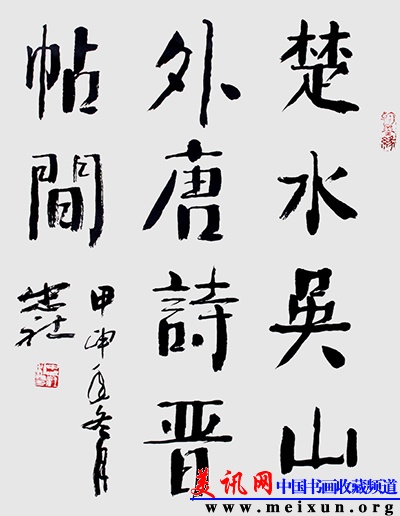 楚水吴山
外唐詩晋
帖間
甲申年冬月
美讯网 中国书画收藏频道
www.meixun.org